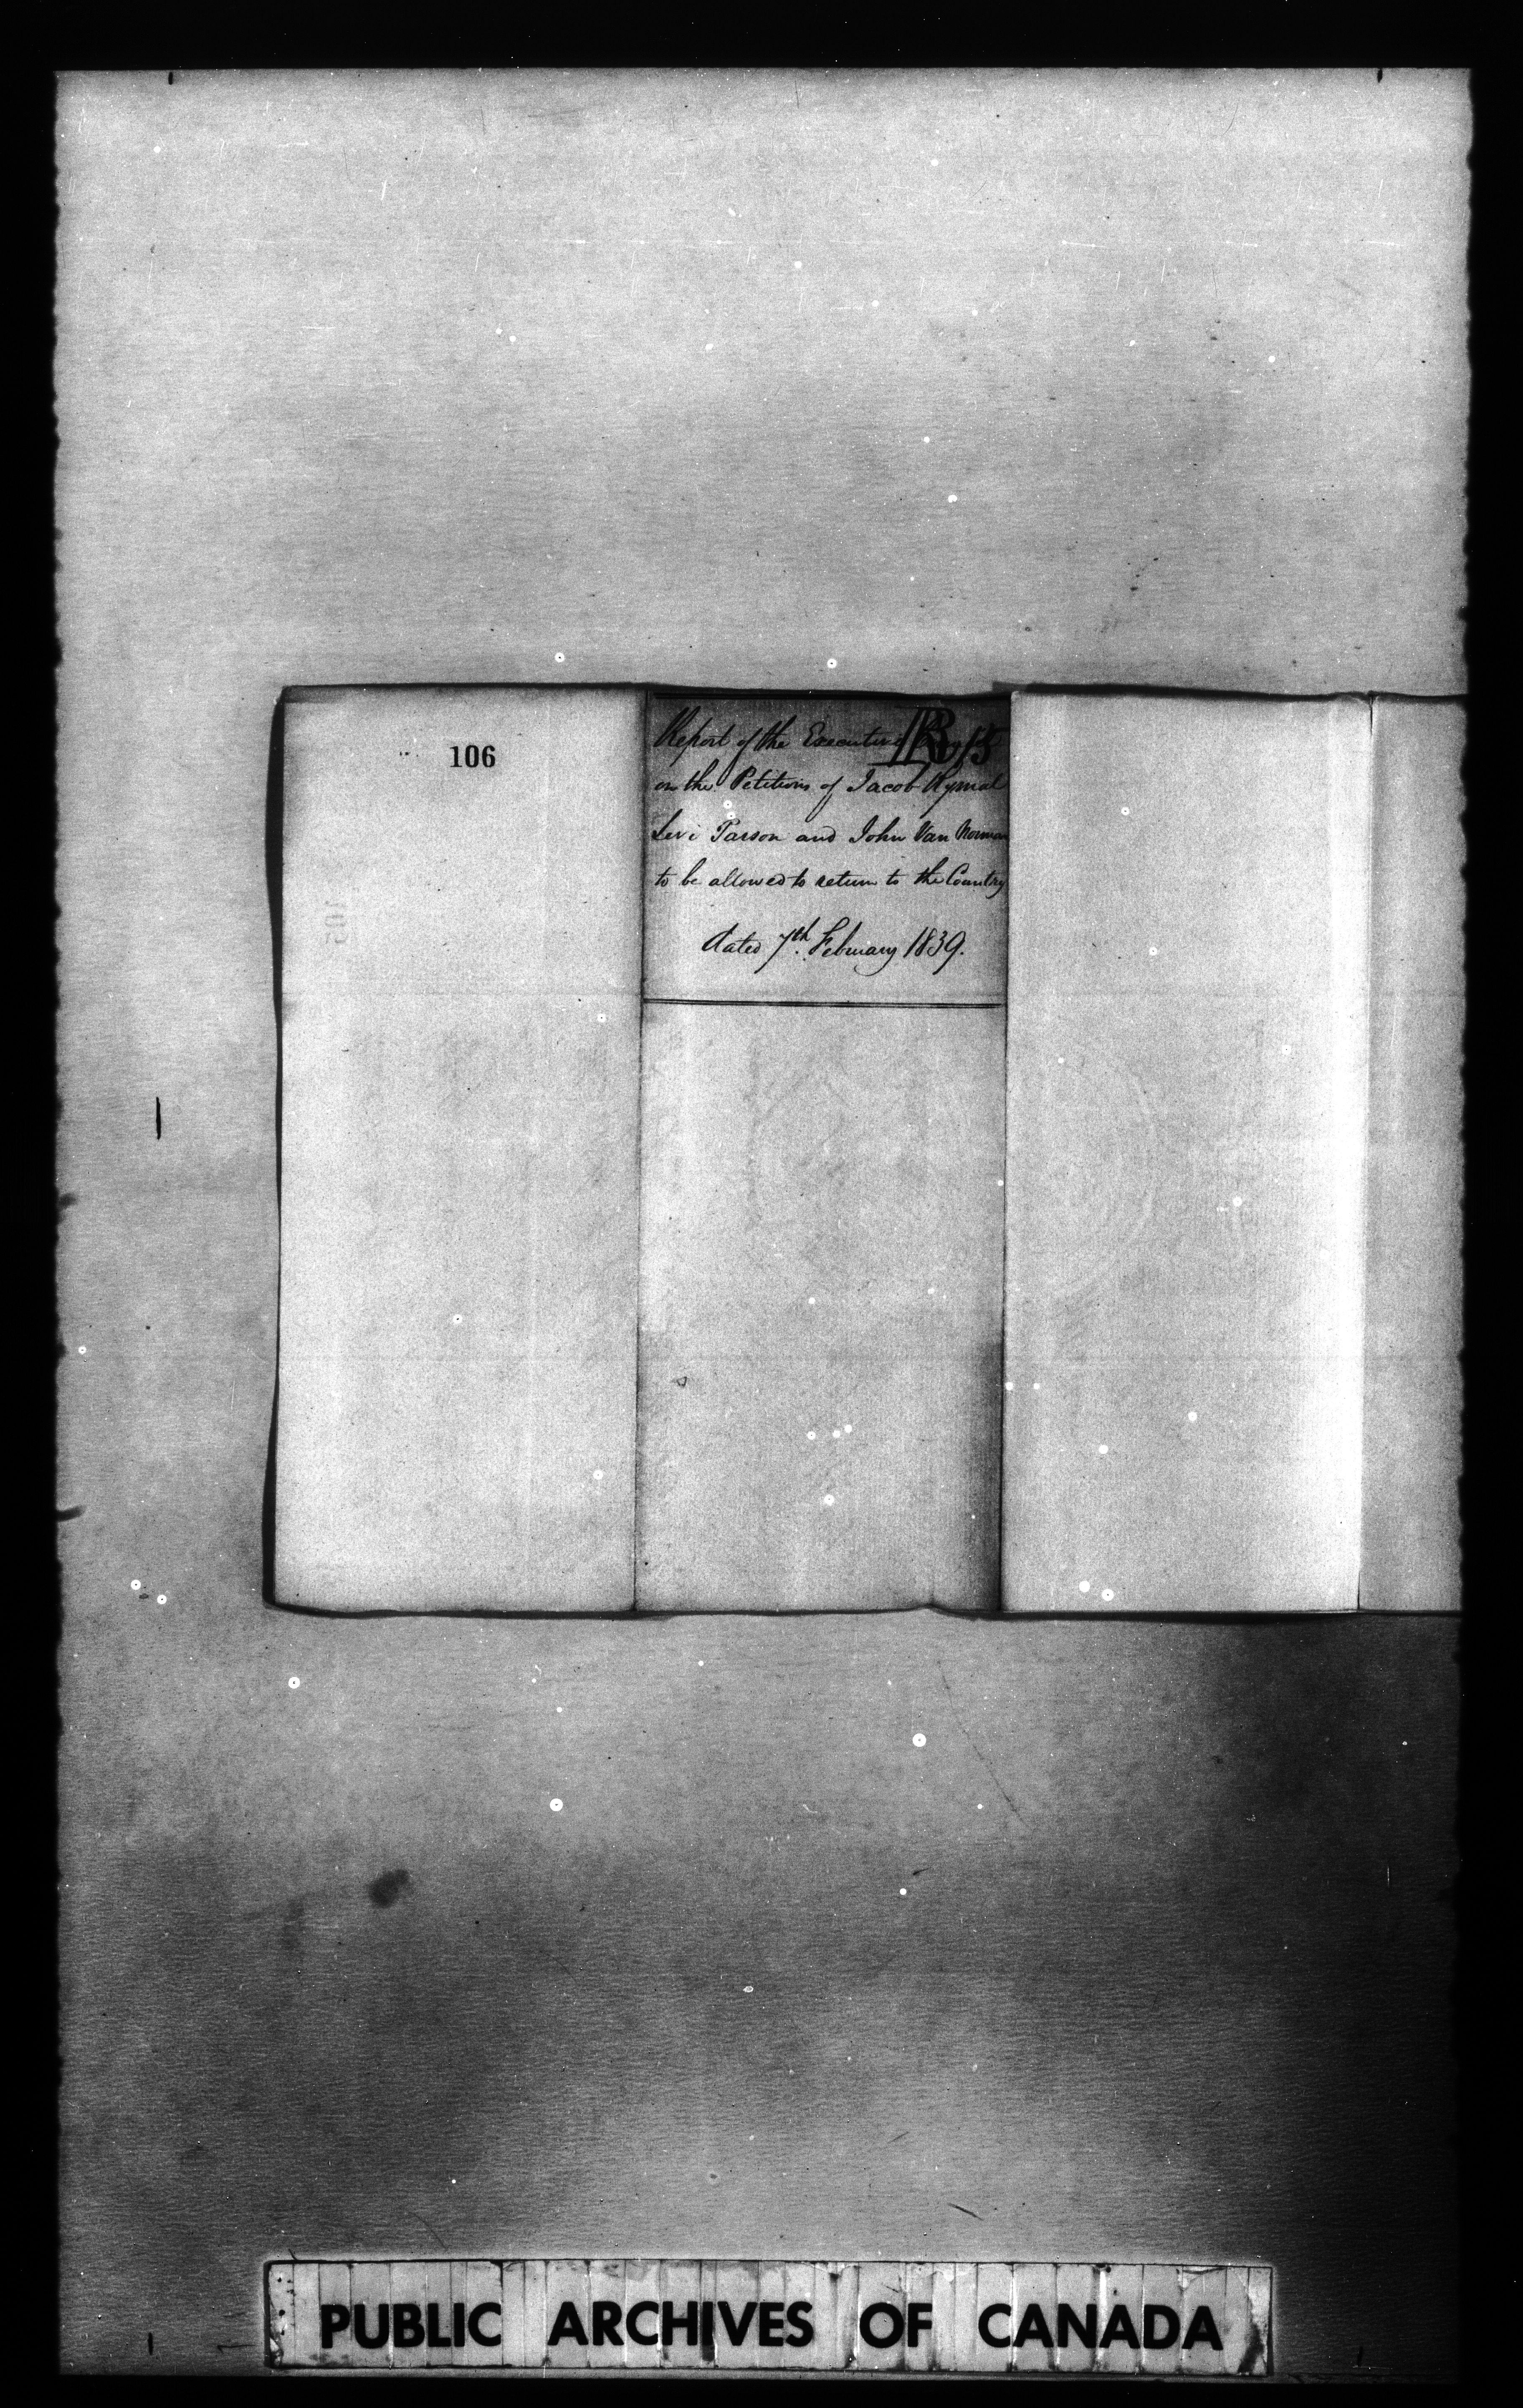 106
B 15
Report of the Executive
on the Petitions of Jacob Rymal
Levi Parson and John Van Norman
to be allowed to return to the Country
dated 7th February 1839.
PUBLIC ARCHIVES OF CANADA